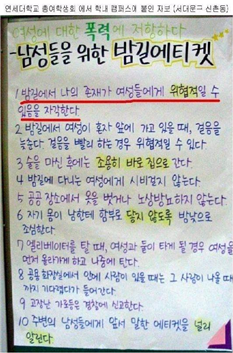 연세대학교 총여학생회에서 학내 캠퍼스에 붙인 자보 (서대문구 신촌동)
여성에 대한 폭력에 저항하다
-남성들을 위한 밤길에티켓
1. 밤길에서 나의 존재가 여성들에게 위협적일 수
있음을 자각한다
2. 밤길에서 여성이 혼자 앞에 가고 있을 때, 걸음을
늦춘다. 걸음을 빨리 하는 경우 위협적일 수 있다
3. 술을 마신 후에는 조용히 바로 집으로 간다
4. 밤길에 다니는 여성에게 시비걸지 않는다
5. 공공장소에서 웃옷 벗거나 노상방뇨하지 않는다
6. 자기 몸이 남한테 함부로 닿지 않도록 밤낮으로
조심한다
7. 엘리베이터를 탈 때, 여성과 둘이 타게 될 경우 여성을
먼저 올라가게 하고 나중에 탄다
8. 공용 화장실에서 안에 사람이 있을 때는 그 사람이 나올 때
까지 기다렸다가 들어간다
9. 고장난 가로등은 경찰에 신고한다
10. 주변의 남성들에게 앞서 말한 에티켓을 널리
알린다